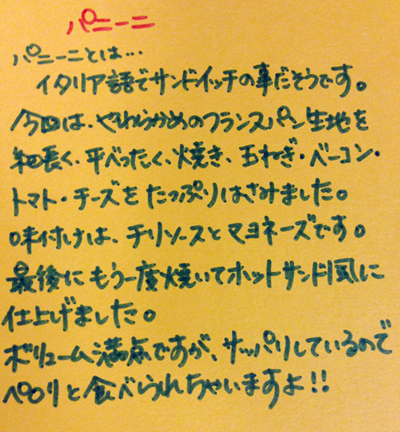 パニーニ
パニーニとは…
イタリア語でサンドイッチの事だそうです。
今回は、やわらかめのフランスパン生地を
細長く、平べったく、焼き、玉ねぎ・ベーコン・
トマト・チーズをたっぷりはさみました。
味付けは、チリソースとマヨネーズです。
最後にもう一度焼いてホットサンド風に
仕上げました。
ボリューム満点ですが、サッパリしているので
ペロリと食べられちゃいますよ!!